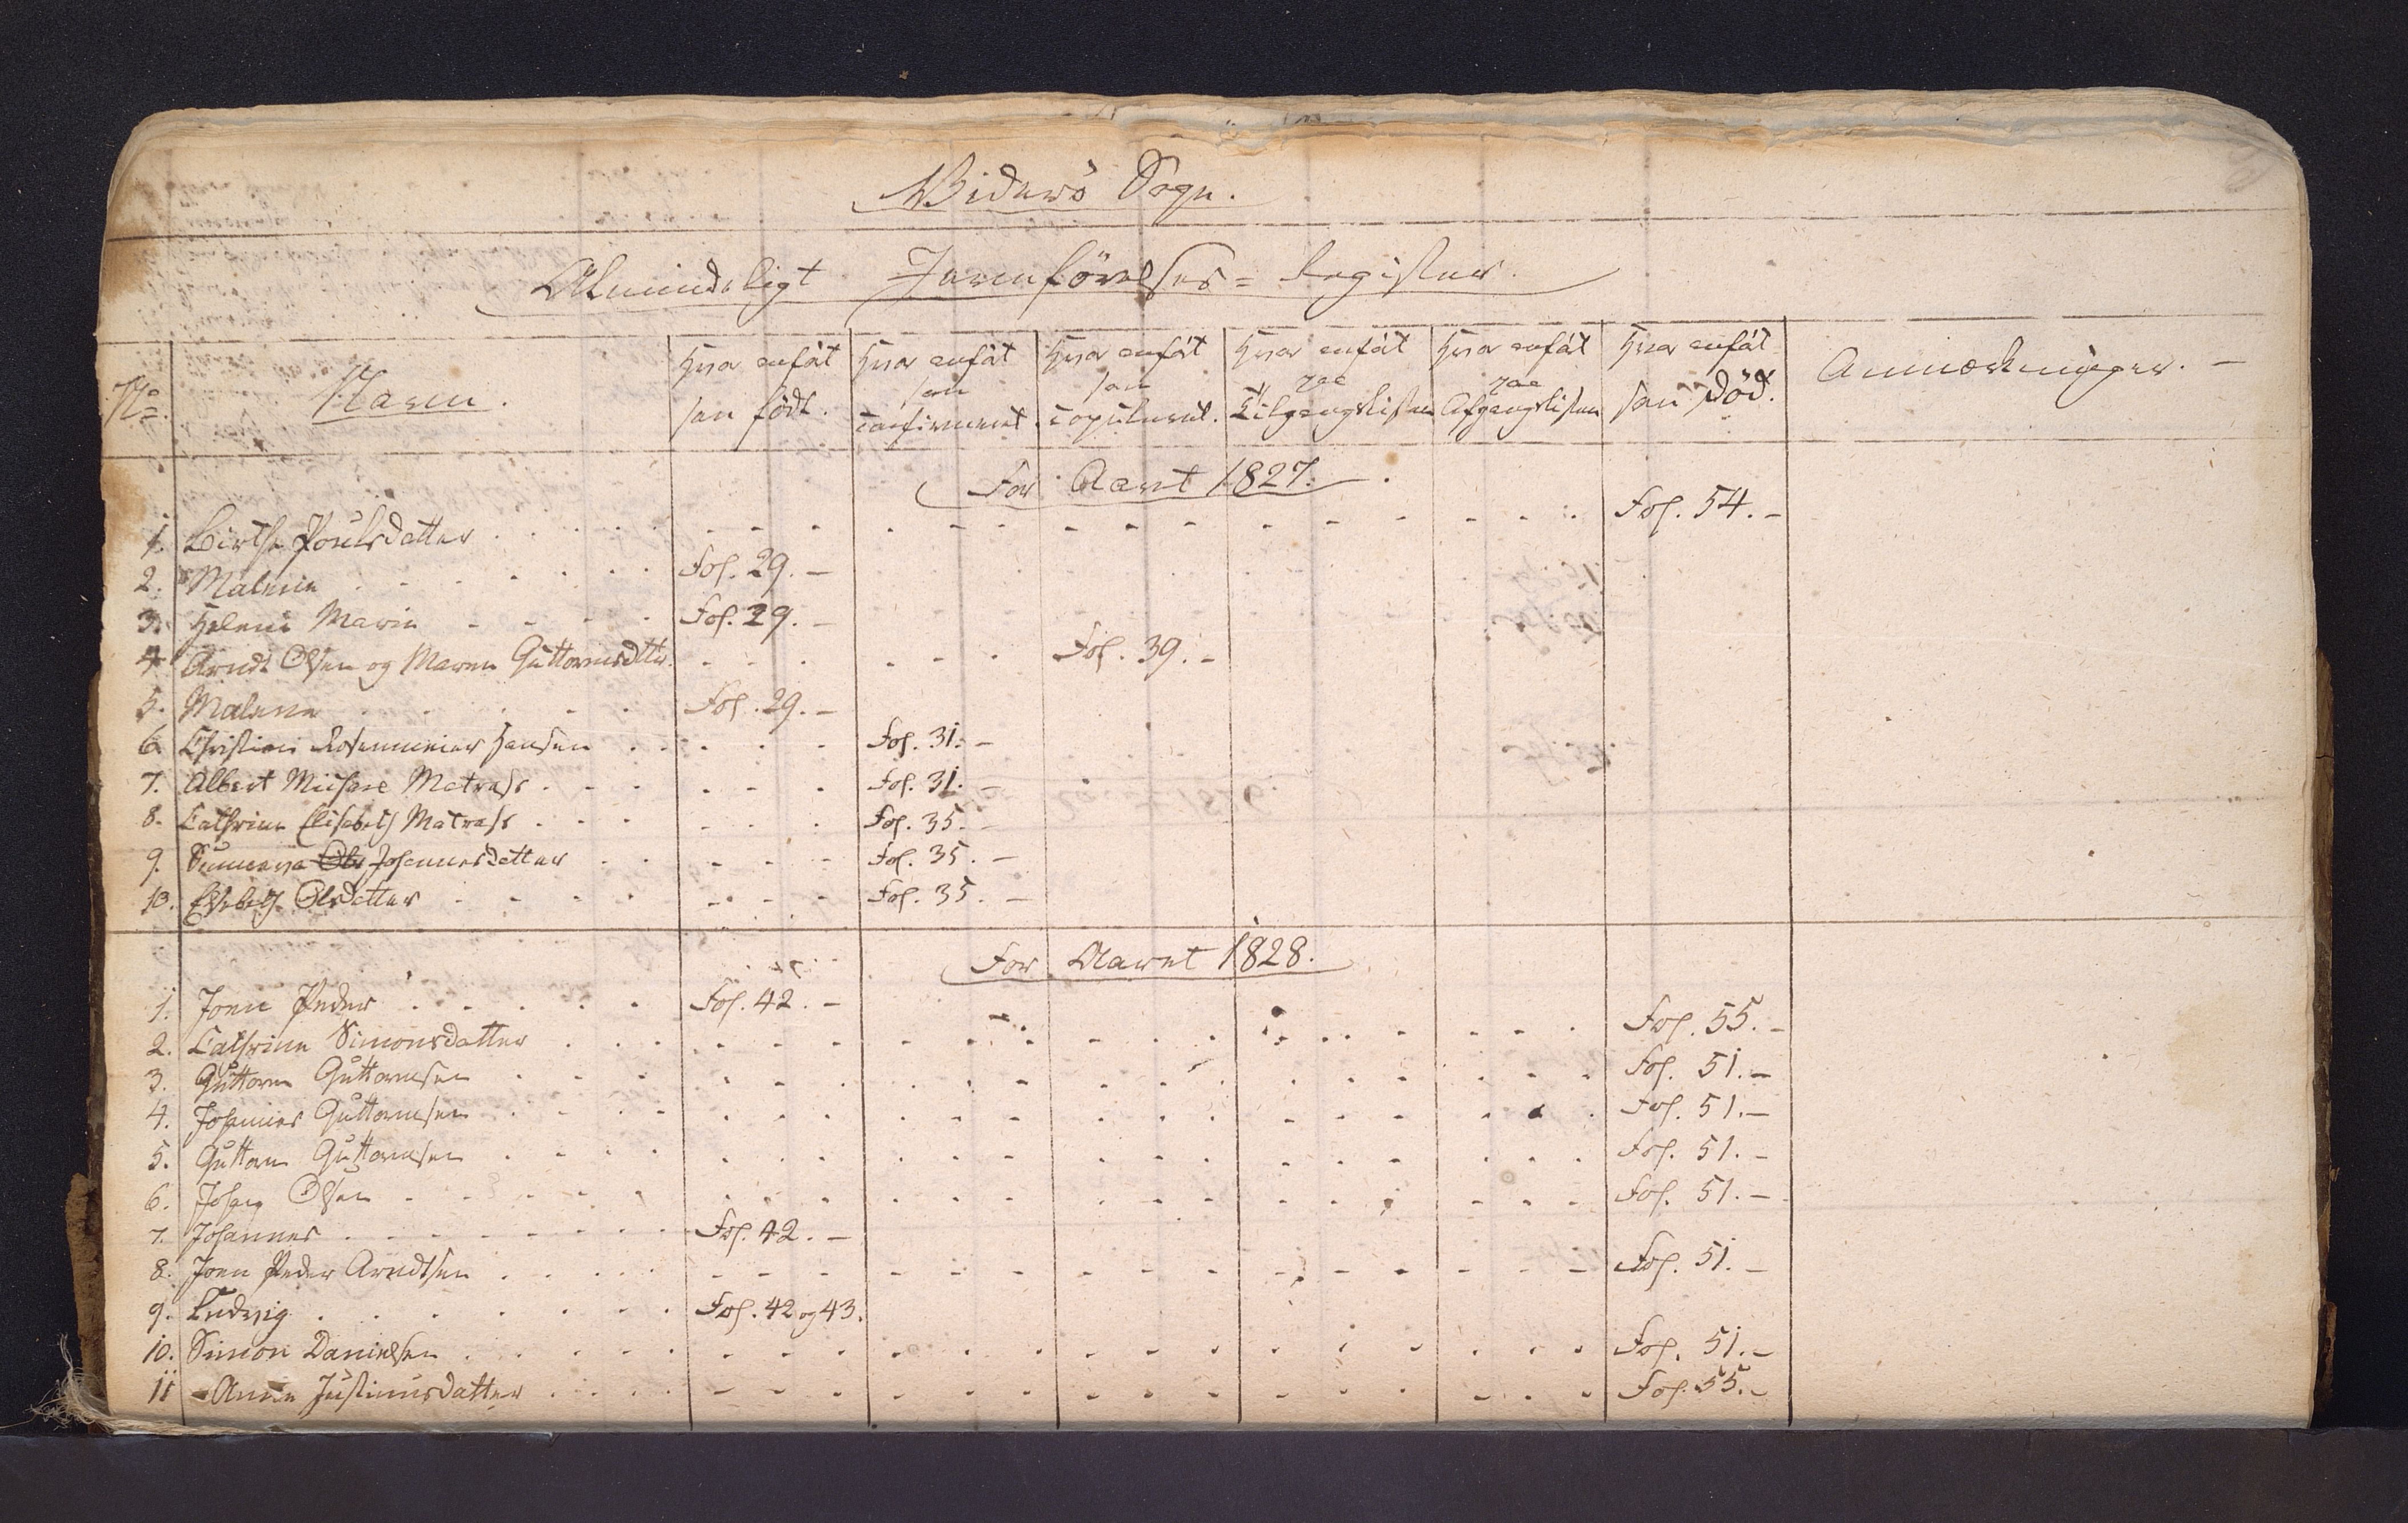 Widerø Sogn.
Almindeligt Jævnførelses= Register.
No. Navn. Hvor anført som født. Hvor anført som confirmeret. Hvor anført som copuleret. Hvor anført paa Tilgangslisten Hvor anført paa Afgangslisten Hvor anført som Død. Anmærkninger. -
For Aaret 1827.
1. Birthe Poulsdatter Fol. 54. -
2. Malene Fol. 29. -
3. Helene Marie Fol. 29. -
4 Arndt Olsen og Maren Guttormsdttr. Fol. 39. -
5. Malene Fol. 29. -
6. Christian Rosenmeier Hansen Fol. 31. -
7. Albert Matras Fol. 31. -
8. Cathrine Elisabeth Matras Fol. 35. -
9. Sunneva Ols Johannesdatter Fol. 35. -
10. Elsebeth Olsdatter Fol. 35. -
For Aaret 1828.
1. Joen Peder Fol. 42. -
2. Cathrine Simonsdatter Fol. 55. -
3. Guttorm Guttormsen Fol. 51. -
4. Johannes Guttormsen Fol. 51. -
5. Guttorm Guttormsen Fol. 51. -
6. Olsen Fol. 51. -
7. Johannes Fol. 42. -
8. Joen Peder Arndtsen Fol. 51. -
9. Ludvig Fol. 42 og 43.
10. Simon Danielsen Fol. 51. -
11 Anne Justinusdatter Fol. 55. -